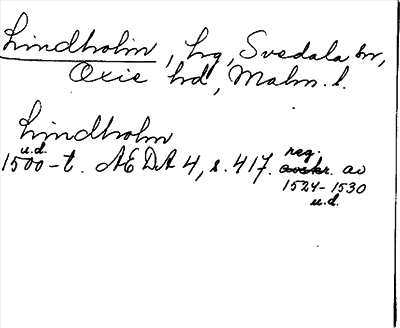 Lindholm, hg, Svedala sn,
Oxie hd, Malm. l.
Lindholm
u.d. reg.
1500-t. AEDA 4, s. 417. avskr. av
1524-1530
u.d.